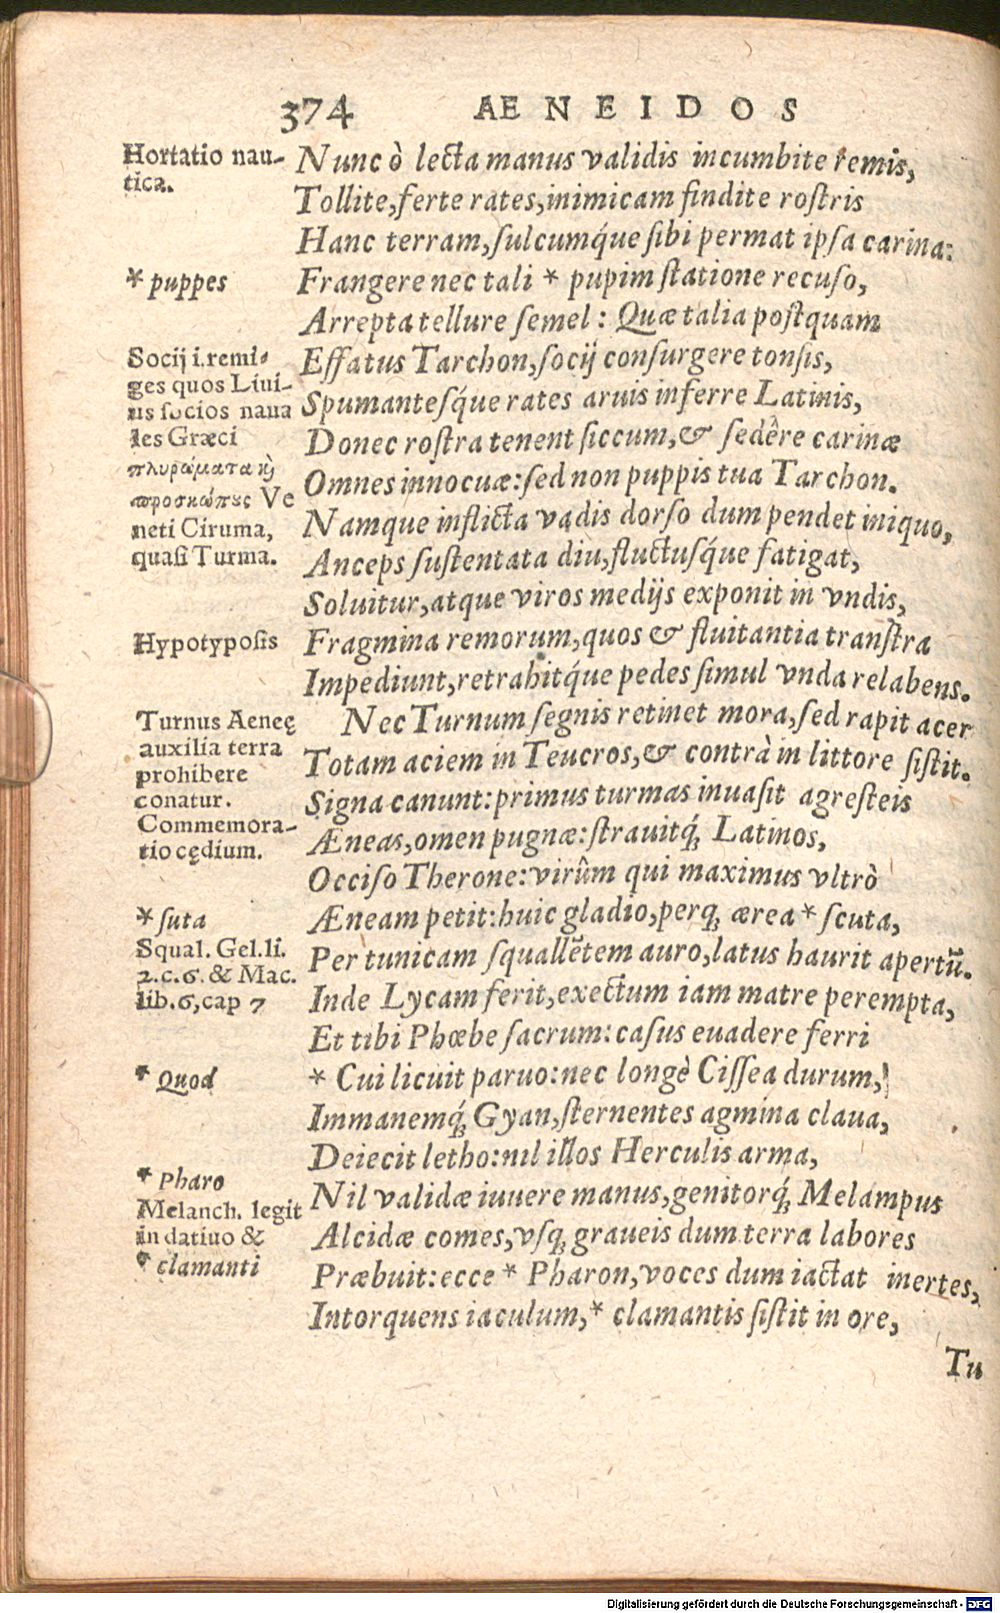 374 AENEIDOS
Hortatio nau-
tica.
* puppes
Socij i.remi-
ges quos Liui-
us socios naua
les Græci
πληρώματα κὶ
προσκώπȣς Ve
neti Ciruma,
quasi Turma.
Hypotyposis
Turnus Aeneę
auxilia terra
prohibere
conatur.
Commemora-
tio cędium.
* suta
Squal. Gel.li.
2.c.6. & Mac.
lib.6,cap 7
* Quod
* Pharo
Melanch. legit
in datiuo &
* clamanti
Nunc ò lecta manus validis incumbite remis,
Tollite,ferte rates,inimicam findite rostris
Hanc terram,sulcumq́ue sibi permat ipsa carina:
Frangere nec tali * pupim statione recuso,
Arrepta tellure semel: Quæ talia postquam
Effatus Tarchon,socij consurgere tonsis,
Spumantesq́ue rates aruis inferre Latinis,
Donec rostra tenent siccum,& sedêre carinæ
Omnes innocuæ:sed non puppis tua Tarchon.
Namque inflicta vadis dorso dum pendet iniquo,
Anceps sustentata diu,fluctusq́ue fatigat,
Soluitur,atque viros medijs exponit in vndis,
Fragmina remorum,quos & fluitantia transtra
Impediunt,retrahitq́ue pedes simul vnda relabens.
Nec Turnum segnis retinet mora,sed rapit acer
Totam aciem in Teucros,& contrà in littore sistit.
Signa canunt:primus turmas inuasit agresteis
Æneas,omen pugnæ:strauitq́; Latinos,
Occiso Therone:virûm qui maximus vltrò
Æneam petit:huic gladio,perq; ærea * scuta,
Per tunicam squallētem auro,latus haurit apertū.
Inde Lycam ferit,exectum iam matre perempta,
Et tibi Phœbe sacrum:casus euadere ferri
* Cui licuit paruo:nec longè Cissea durum,
Immanemq́; Gyan,sternentes agmina claua,
Deiecit letho:nil illos Herculis arma,
Nil validæ iuuere manus,genitorq́; Melampus
Alcidæ comes,vsq; graueis dum terra labores
Præbuit:ecce * Pharon,voces dum iactat inertes,
Intorquens iaculum,* clamantis sistit in ore,
Tu
Digitalisierung gefördert durch die Deutsche Forschungsgemeinschaft - DFG